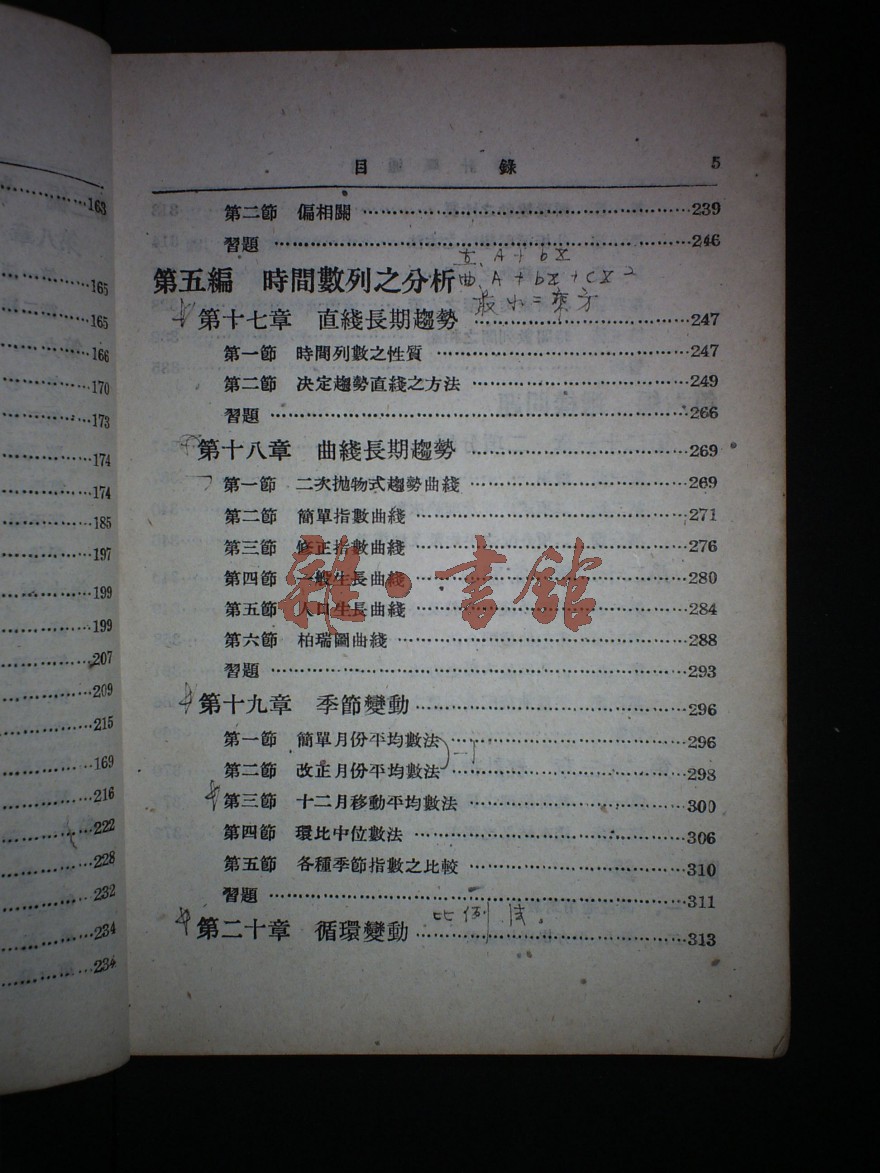 163
165
165
166
170
173
174
174
185
197
199
199
207
209
215
169
216
222
228
232
234
234
目錄 5
第二節 偏相關 239
習題 246
直、A + bX
第五編 時間數列之分析 曲、A + bX + CX2
最小二乘方
第十七章 直綫長期趨勢 247
第一節 時間列數之性質 247
第二節 决定趨勢直綫之方法 249
習題 266
第十八章 曲綫長期趨勢 269
第一節 二次拋物式趨勢曲綫 269
第二節 簡單指數曲綫 271
第三節 修正指數曲綫 276
第四節 一般生長曲綫 280
第五節 人口生長曲綫 284
第六節 柏瑞圖曲綫 288
習題 293
雜·書館
第十九章 季節變動 296
第一節 簡單月份平均數法 296
第二節 改正月份平均數法 298
第三節 十二月移動平均數法 300
第四節 環比中位數法 306
第五節 各種季節指數之比較 310
習題 311
比例法
第二十章 循環變動 313